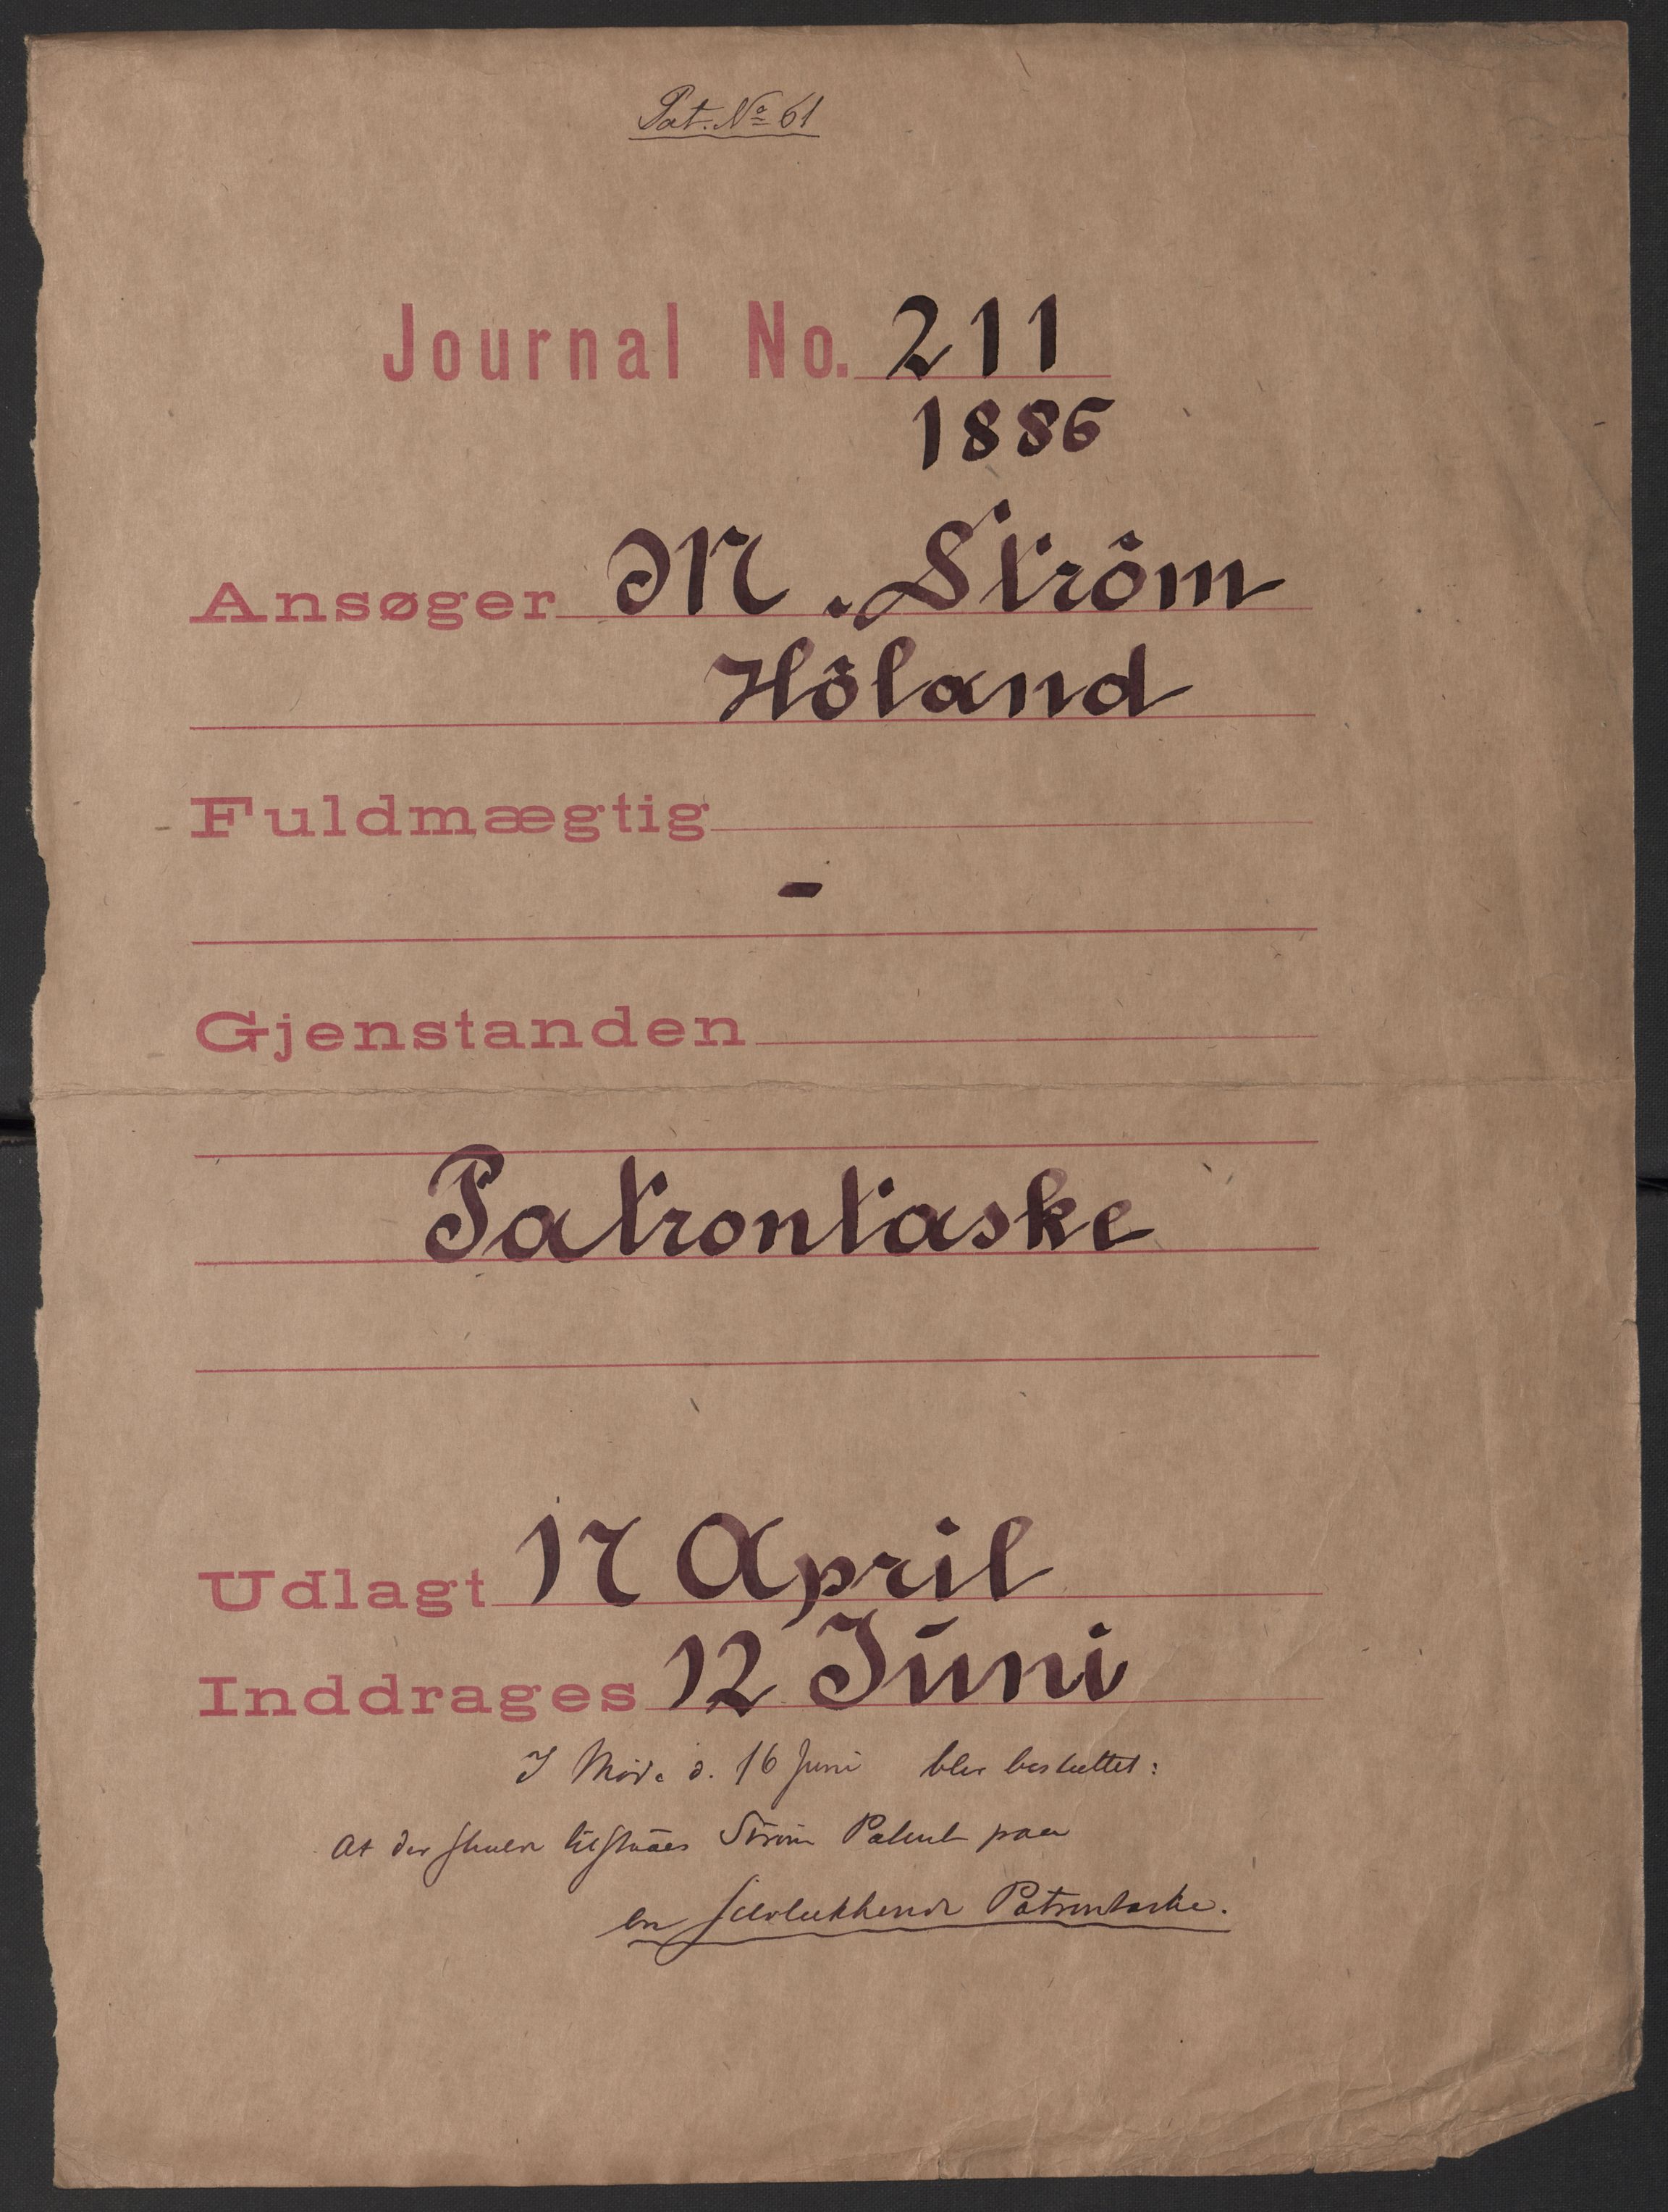 Pat. No 61
Journal No. 211
1886
Ansøger M. Ström
Höland
Fuldmægtig
-
Gjenstanden
Patrontaske
Udlagt 17 April
Inddrages 12 Juni
I Møde d. 16 Juni blev besluttet:
At der skulde tilstaaes Strøm Patent paa
en selvlukkende Patrontaske.